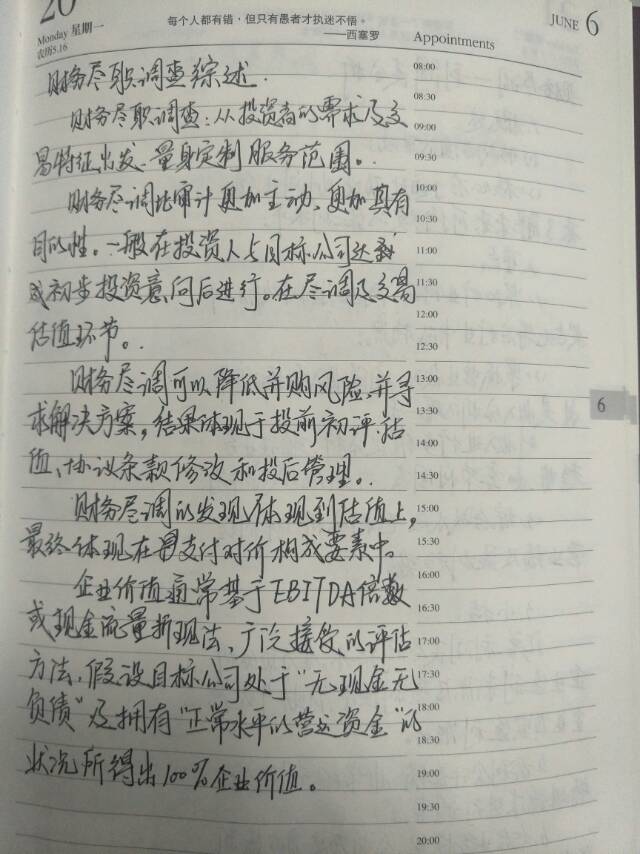 20
Monday 星期一
农历5.16
每个人都有错，但只有愚者才执迷不悟。
——西塞罗
Appointments
JUNE 6
财务尽职调查综述.
财务尽职调查：从投资者的需求及交
易特征出发、量身定制服务范围。
财务尽调比审计更加主动、更加具有
目的性。一般在投资人与目标公司达
成初步投资意向后进行。在尽调及交易
估值环节。
财务尽调可以降低并购风险、并寻
求解决方案，结果体现于投前初评、估
值、协议条款修改和投后管理。
财务尽调的发现体现到估值上，
最终体现在支付对价构成要素中。
企业价值通常基于EBITDA倍数
或现金流量折现法、广泛接受的评估
方法，假设目标公司处于“无现金无
负债”及拥有“正常水平的营运资金”的
状况所得出100%企业价值。
08:00
08:30
09:00
09:30
10:00
10:30
11:00
11:30
12:00
12:30
13:00
13:30
14:00
14:30
15:00
15:30
16:00
16:30
17:00
17:30
18:00
18:30
19:00
19:30
20:00
6